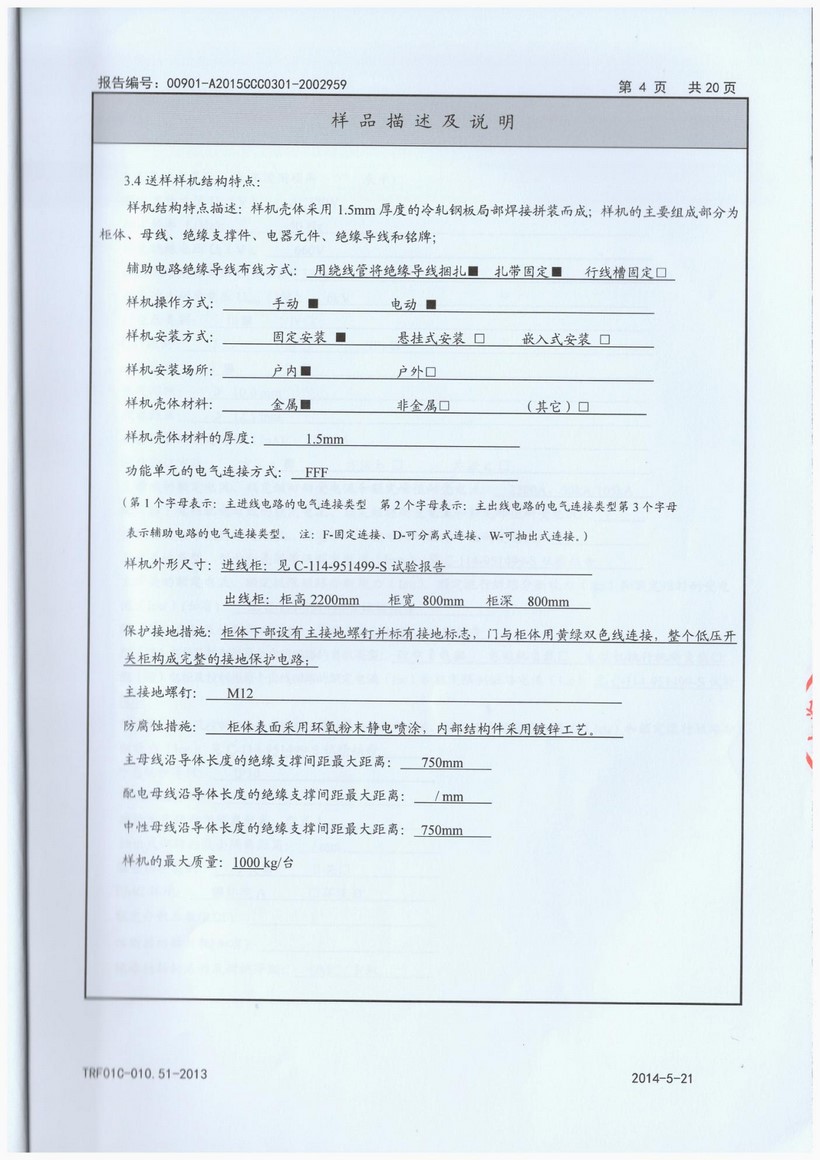 报告编号：00901-A2015CCC0301-2002959 第 4 页 共 20 页
样 品 描 述 及 说 明
3.4 送样样机结构特点：
样机结构特点描述：样机壳体采用 1.5mm 厚度的冷轧钢板局部焊接拼装而成；样机的主要组成部分为
柜体、母线、绝缘支撑件、电器元件、绝缘导线和铭牌；
辅助电路绝缘导线布线方式： 用绕线管将绝缘导线捆扎■ 扎带固定■ 行线槽固定□
样机操作方式： 手动 ■ 电动 ■
样机安装方式： 固定安装 ■ 悬挂式安装 □ 嵌入式安装 □
样机安装场所： 户内■ 户外□
样机壳体材料： 金属■ 非金属□ （其它）□
样机壳体材料的厚度： 1.5mm
功能单元的电气连接方式： FFF
（第 1 个字母表示：主进线电路的电气连接类型 第 2 个字母表示：主出线电路的电气连接类型第 3 个字母
表示辅助电路的电气连接类型。 注：F-固定连接、D-可分离式连接、W-可抽出式连接。）
样机外形尺寸：进线柜：见 C-114-951499-S 试验报告
出线柜：柜高 2200mm 柜宽 800mm 柜深 800mm
保护接地措施：柜体下部设有主接地螺钉并标有接地标志，门与柜体用黄绿双色线连接，整个低压开
关柜构成完整的接地保护电路；
主接地螺钉： M12
防腐蚀措施： 柜体表面采用环氧粉末静电喷涂，内部结构件采用镀锌工艺。
主母线沿导体长度的绝缘支撑间距最大距离： 750mm
配电母线沿导体长度的绝缘支撑间距最大距离： / mm
中性母线沿导体长度的绝缘支撑间距最大距离： 750mm
样机的最大质量：1000 kg/台
TRF01C-010.51-2013 2014-5-21